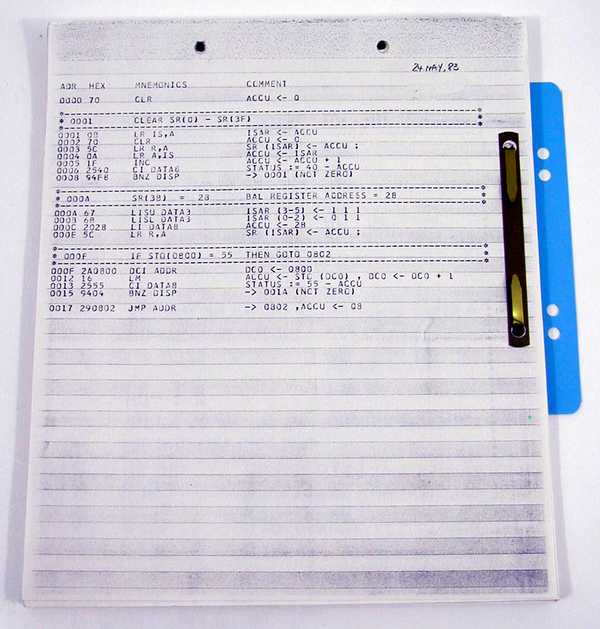 24 MAY, 83
ADR HEX MNEMONICS COMMENT
0000 70 CLR ACCU <- 0
*--------------------------------------------------*
* 0001 CLEAR SR(0) - SR(3F) *
*--------------------------------------------------*
0001 0B LR IS,A ISAR <- ACCU
0002 70 CLR ACCU <- 0
0003 5C LR R,A SR (ISAR) <- ACCU ;
0004 0A LR A,IS ACCU <- ISAR
0005 1F INC ACCU <- ACCU + 1
0006 2540 CI DATA8 STATUS := 40 - ACCU
0008 94F8 BNZ DISP -> 0001 (NOT ZERO)
*--------------------------------------------------*
* 000A SR(3B) = 28 BAL REGISTER ADDRESS = 28 *
*--------------------------------------------------*
000A 67 LISU DATA3 ISAR (3-5) <- 1 1 1
000B 6B LISL DATA3 ISAR (0-2) <- 0 1 1
000C 2028 LI DATA8 ACCU <- 28
000E 5C LR R,A SR (ISAR) <- ACCU ;
*--------------------------------------------------*
* 000F IF STO(0800) = 55 THEN GOTO 0802 *
*--------------------------------------------------*
000F 2A0800 DCI ADDR DC0 <- 0800
0012 16 LM ACCU <- STO (DC0) , DC0 <- DC0 + 1
0013 2555 CI DATA8 STATUS := 55 - ACCU
0015 9404 BNZ DISP -> 001A (NOT ZERO)
0017 290802 JMP ADDR -> 0802 ,ACCU <- 08